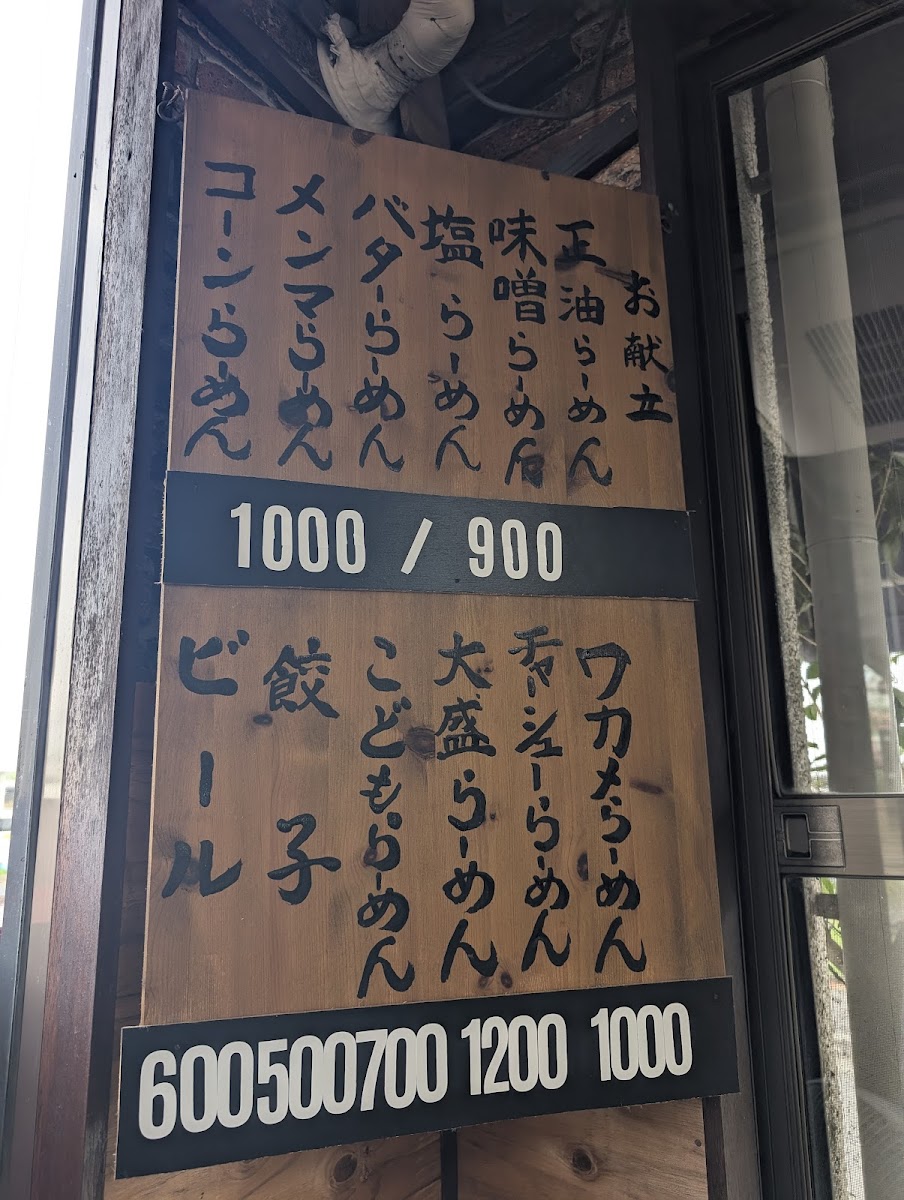 お献立
正油らーめん
味噌らーめん
塩らーめん
バターらーめん
メンマらーめん
コーンらーめん
1000 / 900
ワカメらーめん
チャーシューらーめん
大盛らーめん
こどもらーめん
餃子
ビール
600 500 700 1200 1000